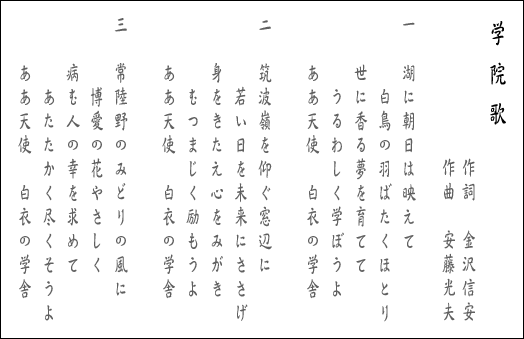 学院歌
作詞 金沢信安
作曲 安藤光夫
一 湖に朝日は映えて
白鳥の羽ばたくほとり
世に香る夢を育てて
うるわしく学ぼうよ
ああ天使 白衣の学舎
二 筑波嶺を仰ぐ窓辺に
若い日を未来にささげ
身をきたえ心をみがき
むつまじく励もうよ
ああ天使 白衣の学舎
三 常陸野のみどりの風に
博愛の花やさしく
病む人の幸を求めて
あたたかく尽くそうよ
ああ天使 白衣の学舎